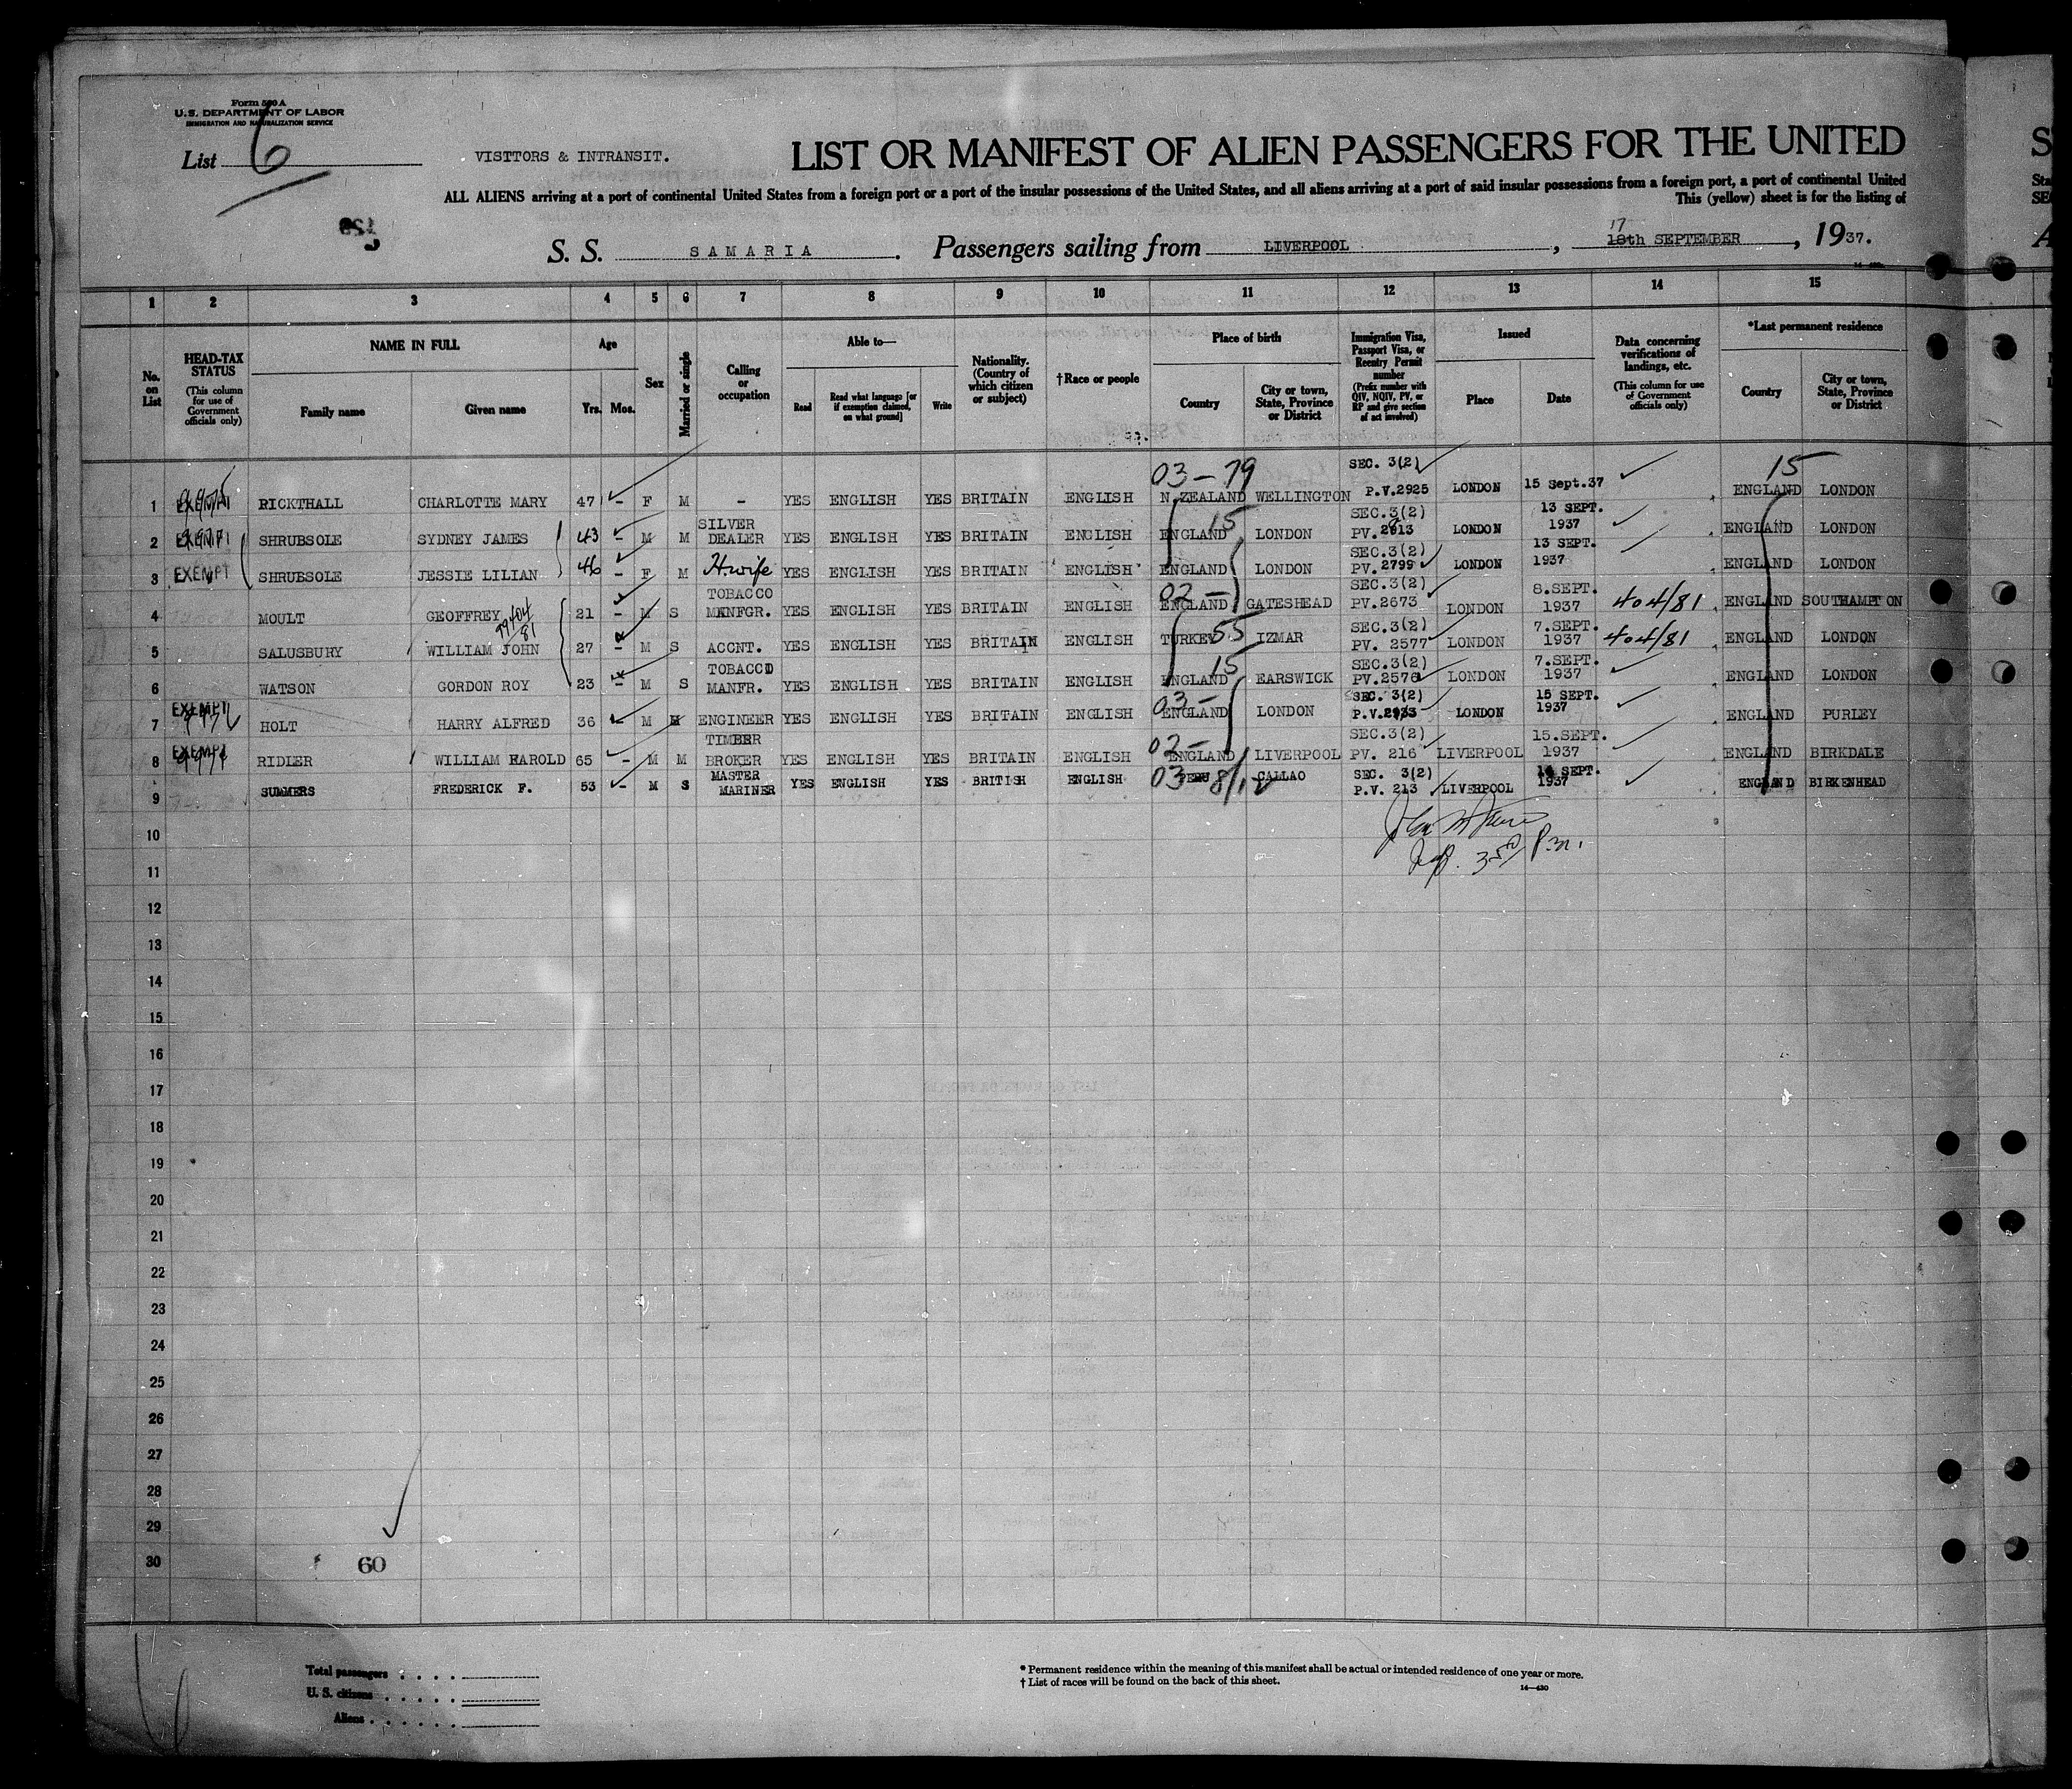 Form 500 A
U.S. DEPARTMENT OF LABOR
IMMIGRATION AND NATURALIZATION SERVICE
List 6
VISITORS & INTRANSIT.
LIST OR MANIFEST OF ALIEN PASSENGERS FOR THE UNITED
ALL ALIENS arriving at a port of continental United States from a foreign port or a port of the insular possessions of the United States, and all aliens arriving at a port of said insular possessions from a foreign port, a port of continental United
This (yellow) sheet is for the listing of
S. S. SAMARIA. Passengers sailing from LIVERPOOL, 17 18th SEPTEMBER, 1937.
1 2 3 4 5 6 7 8 9 10 11 12 13 14 15
No. on List
HEAD-TAX STATUS (This column for use of Government officials only)
NAME IN FULL
Family name
Given name
Age
Yrs. Mos.
Sex
Married or single
Calling or occupation
Able to—
Read
Read what language [or if exemption claimed, on what ground]
Write
Nationality. (Country of which citizen or subject)
†Race or people
Place of birth
Country
City or town, State, Province or District
Immigration Visa, Passport Visa, or Reentry Permit number (Prefix number with QIV, NQIV, PV, or RP and give section of act involved)
Issued
Place
Date
Data concerning verifications of landings, etc. (This column for use of Government officials only)
*Last permanent residence
Country
City or town, State, Province or District
1 EXEMPT RICKTHALL CHARLOTTE MARY 47 - F M - YES ENGLISH YES BRITAIN ENGLISH 03-79 N. ZEALAND WELLINGTON SEC. 3(2) P.V.2925 LONDON 15 Sept.37 15 ENGLAND LONDON
2 EXEMPT SHRUBSOLE SYDNEY JAMES 43 - M M SILVER DEALER YES ENGLISH YES BRITAIN ENGLISH ENGLAND 15 LONDON SEC.3(2) PV.2813 LONDON 13 SEPT. 1937 ENGLAND LONDON
3 EXEMPT SHRUBSOLE JESSIE LILIAN 46 - F M H.wife YES ENGLISH YES BRITAIN ENGLISH ENGLAND LONDON SEC.3(2) PV.2799 LONDON 13 SEPT. 1937 ENGLAND LONDON
4 MOULT GEOFFREY 21 - M S TOBACCO MANFGR. YES ENGLISH YES BRITAIN ENGLISH 02- ENGLAND GATESHEAD SEC.3(2) PV.2673 LONDON 8.SEPT. 1937 404/81 ENGLAND SOUTHAMPTON
5 SALUSBURY WILLIAM JOHN 99404/81 27 - M S ACCNT. YES ENGLISH YES BRITAIN ENGLISH TURKEY 55 IZMAR SEC.3(2) PV. 2577 LONDON 7.SEPT. 1937 404/81 ENGLAND LONDON
6 WATSON GORDON ROY 23 - M S TOBACCO MANFR. YES ENGLISH YES BRITAIN ENGLISH ENGLAND 15 EARSWICK SEC.3(2) PV.2576 LONDON 7.SEPT. 1937 ENGLAND LONDON
7 EXEMPT HOLT HARRY ALFRED 36 - M M ENGINEER YES ENGLISH YES BRITAIN ENGLISH 03- ENGLAND LONDON SEC. 3(2) P.V.2933 LONDON 15 SEPT. 1937 ENGLAND PURLEY
8 EXEMPT RIDLER WILLIAM HAROLD 65 - M M TIMBER BROKER YES ENGLISH YES BRITAIN ENGLISH 02- ENGLAND LIVERPOOL SEC.3(2) PV. 216 LIVERPOOL 15.SEPT. 1937 ENGLAND BIRKDALE
9 SUMMERS FREDERICK F. 53 - M S MASTER MARINER YES ENGLISH YES BRITISH ENGLISH 03- PERU CALLAO SEC. 3(2) P.V. 213 LIVERPOOL 14 SEPT. 1937 ENGLAND BIRKENHEAD
10
11
12
13
14
15
16
17
18
19
20
21
22
23
24
25
26
27
28
29
30
60
Total passengers
U. S. citizens
Aliens
* Permanent residence within the meaning of this manifest shall be actual or intended residence of one year or more.
† List of races will be found on the back of this sheet.
14—430